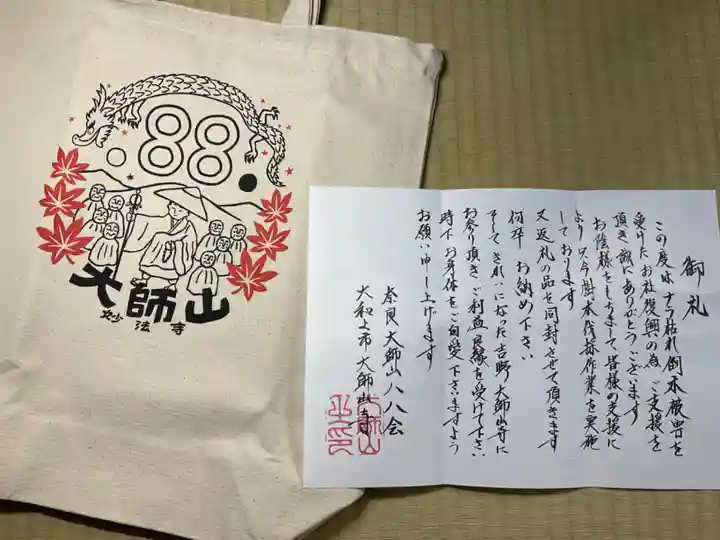 88
大師山
妙法寺
御礼
この度は ナラ枯れ倒木被害を
受けたお社復興の為 ご支援を
頂き 誠にありがとうございます
お陰様をもちまして 皆様の支援に
より 只今樹木伐採作業を実施
しております
又 返礼の品を同封させて頂きます
何卒 お納め下さい
そして きれいになった吉野大師山寺に
お参り頂き ご利益 良縁を受けて下さい
時下 お身体をご自愛下さいますよう
お願い申し上げます
奈良大師山八八会
大和上市 大師山寺